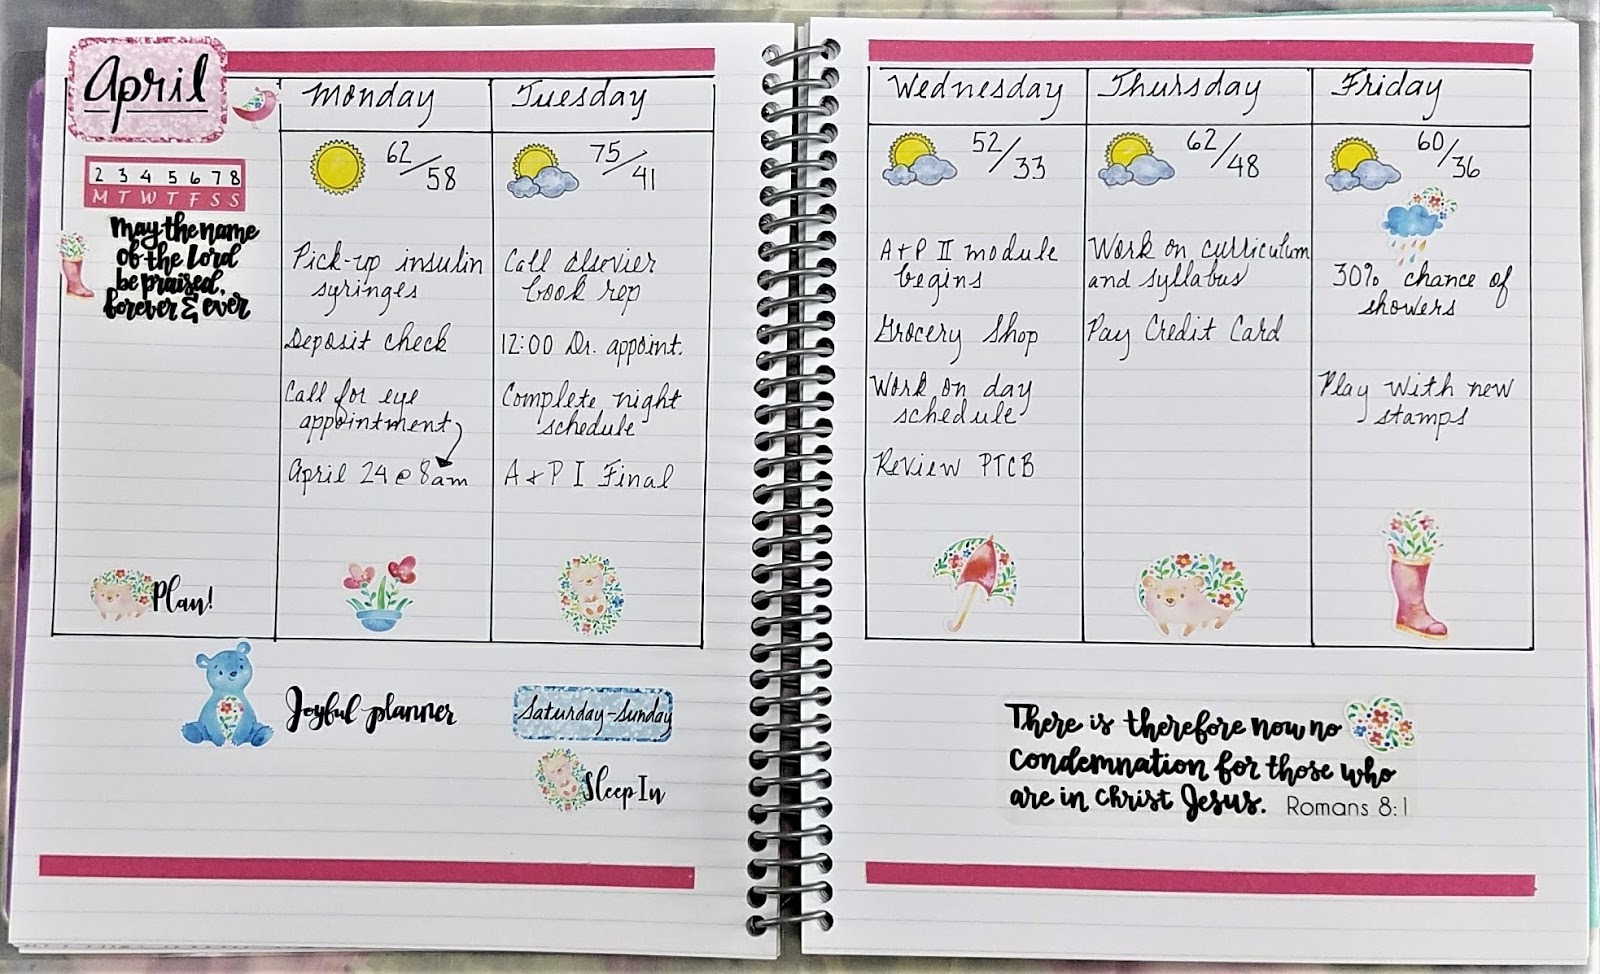 April
2 3 4 5 6 7 8
M T W T F S S
May the name
of the Lord
be praised,
forever & ever
Plan!
Monday
62/58
Pick-up insulin
syringes
Deposit check
Call for eye
appointment
April 24 @ 8am
Tuesday
75/41
Call Elsevier
book rep
12:00 Dr. appoint.
Complete night
schedule
A & P I Final
Joyful planner
Saturday-Sunday
Sleep In
Wednesday
52/33
A + P II module
begins
Grocery Shop
Work on day
schedule
Review PTCB
Thursday
62/48
Work on curriculum
and syllabus
Pay Credit Card
Friday
60/36
30% chance of
showers
Play with new
stamps
There is therefore now no
condemnation for those who
are in Christ Jesus. Romans 8:1